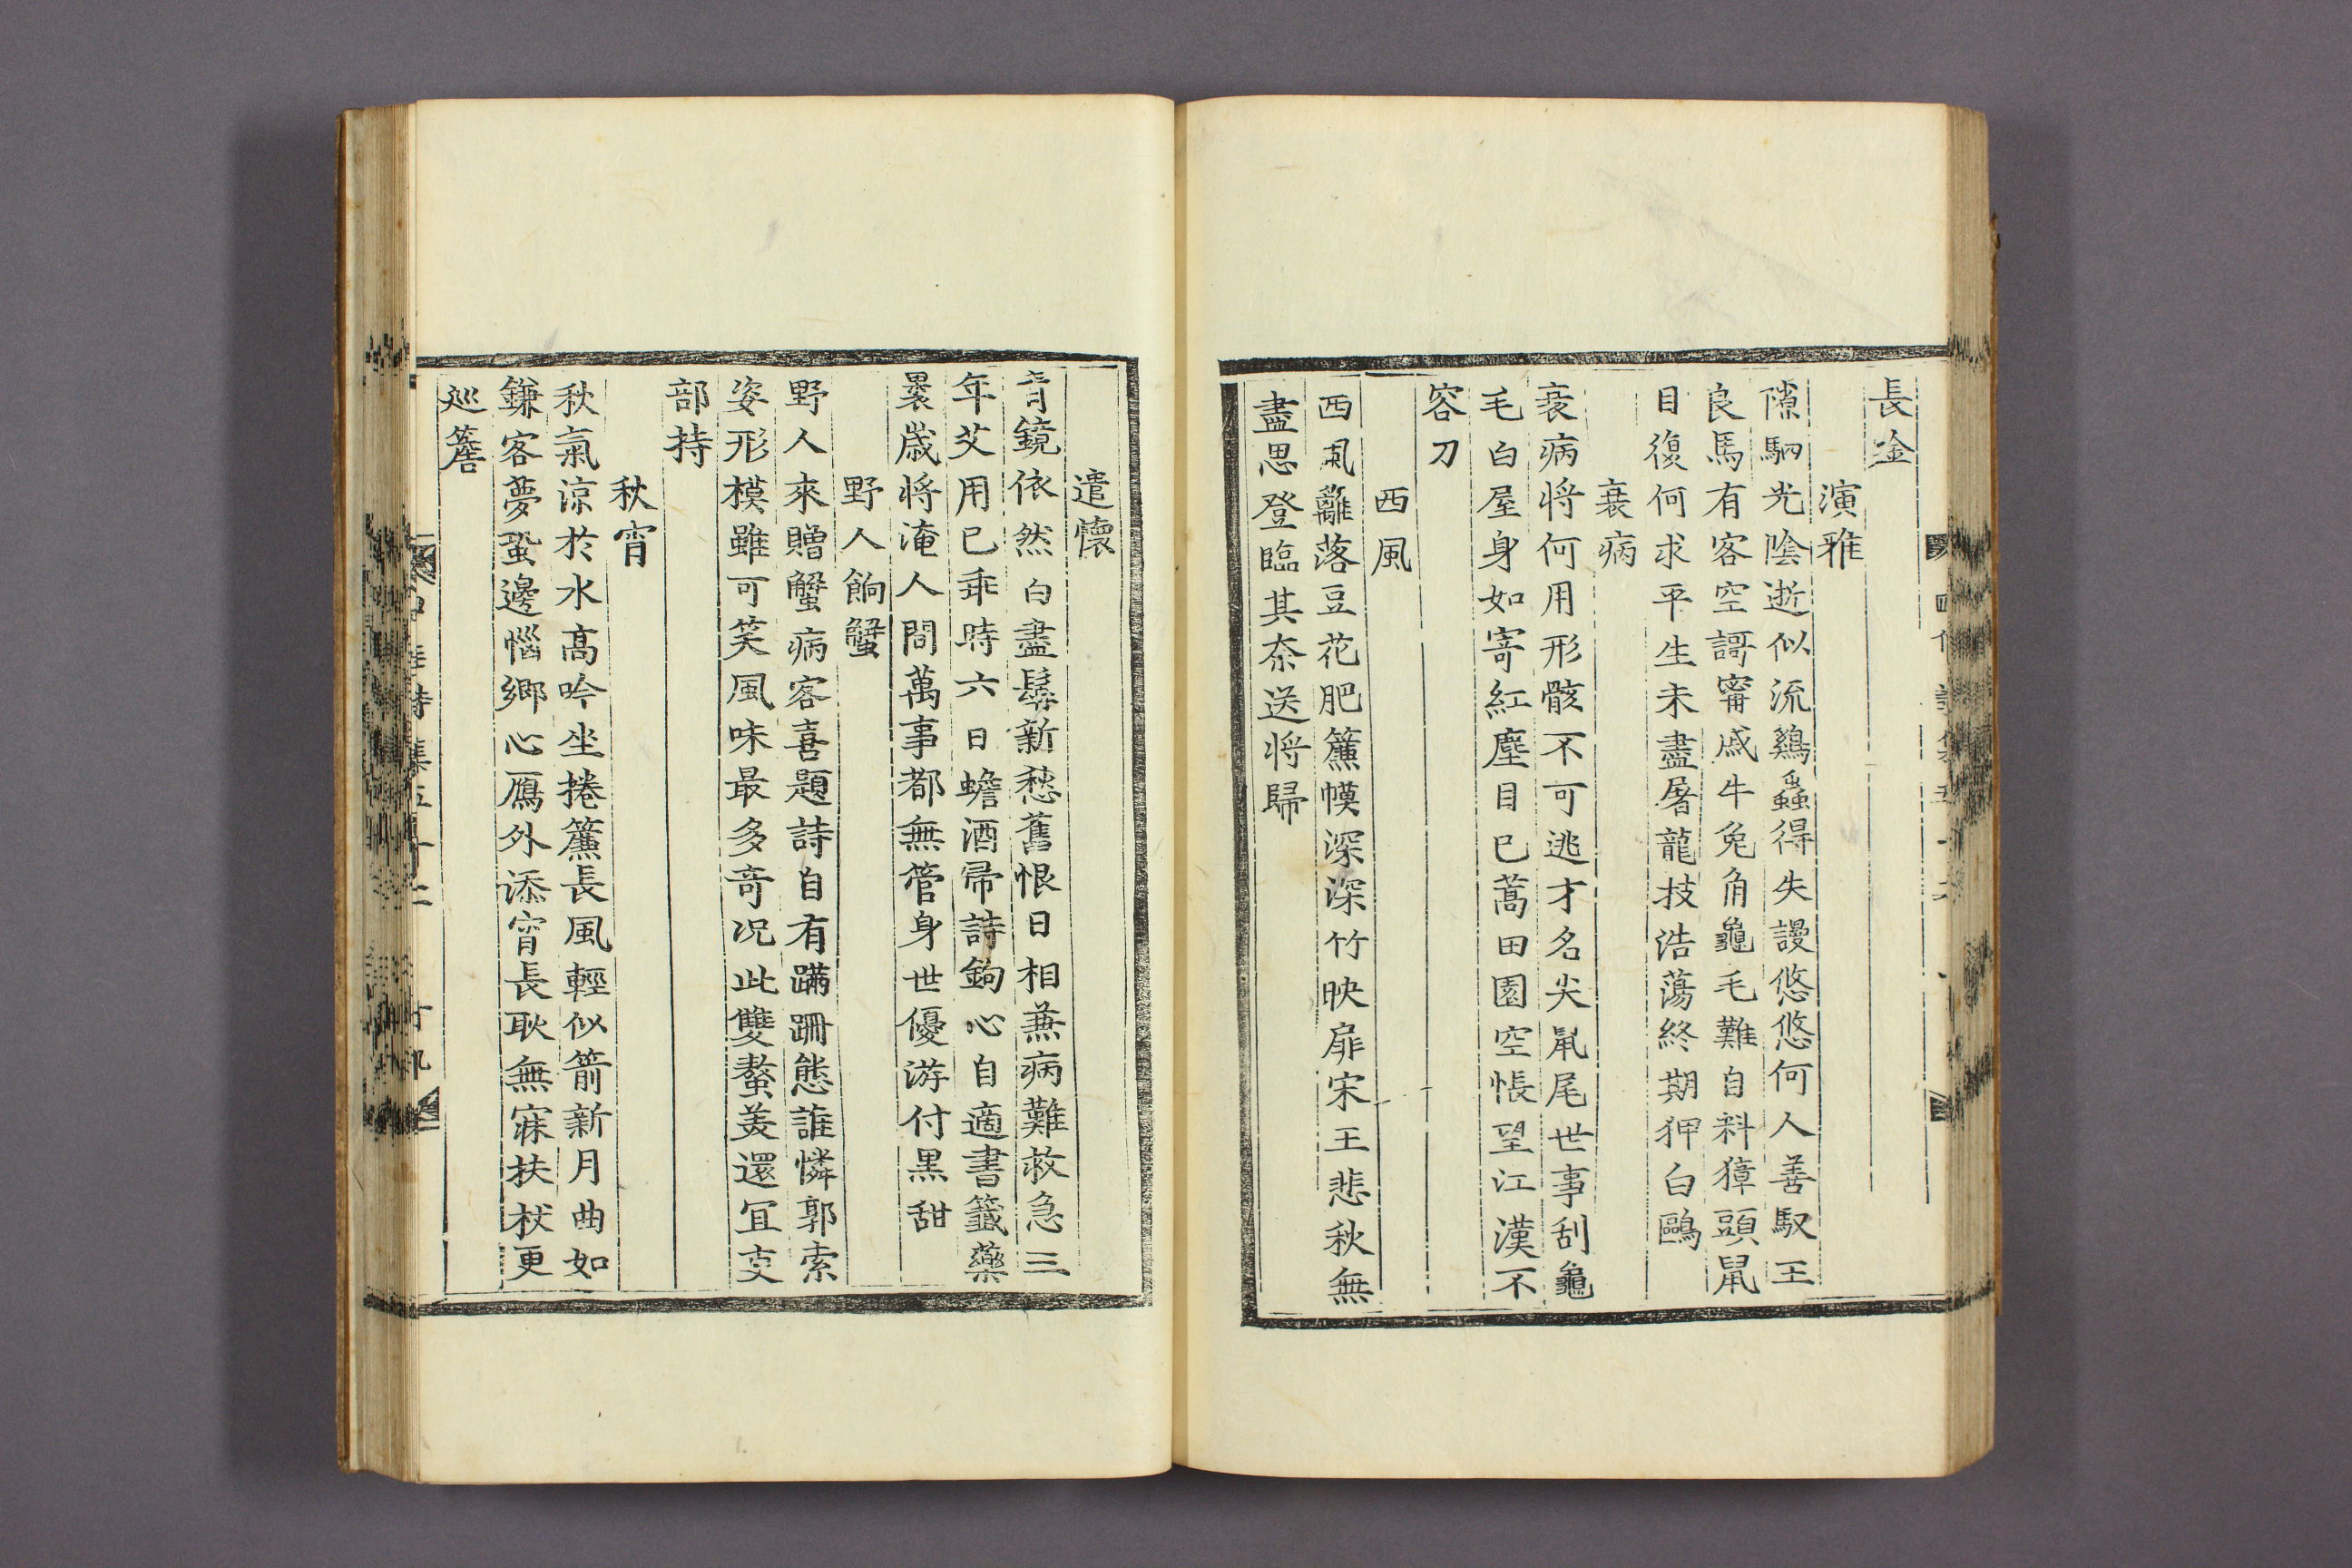 長金
演雅
隙駟光陰逝似流鷄蟲得失謾悠悠何人善馭王
良馬有客空謌甯戚牛兔角龜毛難自料獐頭鼠
目復何求平生未盡屠龍技浩蕩終期狎白鷗
衰病
衰病將何用形骸不可逃才名尖鼠尾世事刮龜
毛白屋身如寄紅塵目已蒿田園空悵望江漢不
容刀
西風
西風籬落豆花肥簾幙深深竹映扉宋玉悲秋無
盡思登臨其奈送將歸
遣懷
青鏡依然白盡鬚新愁舊恨日相兼病難救急三
年艾用已乖時六日蟾酒帚詩鉤心自適書籤藥
裹歲將淹人間萬事都無管身世優游付黒甜
野人餉蟹
野人來贈蟹病客喜題詩自有蹣跚態誰憐郭索
姿形模雖可笑風味最多竒况此雙螯美還宜支
部持
秋宵
秋氣涼於水髙吟坐捲簾長風輕似箭新月曲如
鎌客夢蛩邊惱鄉心鴈外添宵長耿無寐扶杖更
巡簷
四佳詩集五十二